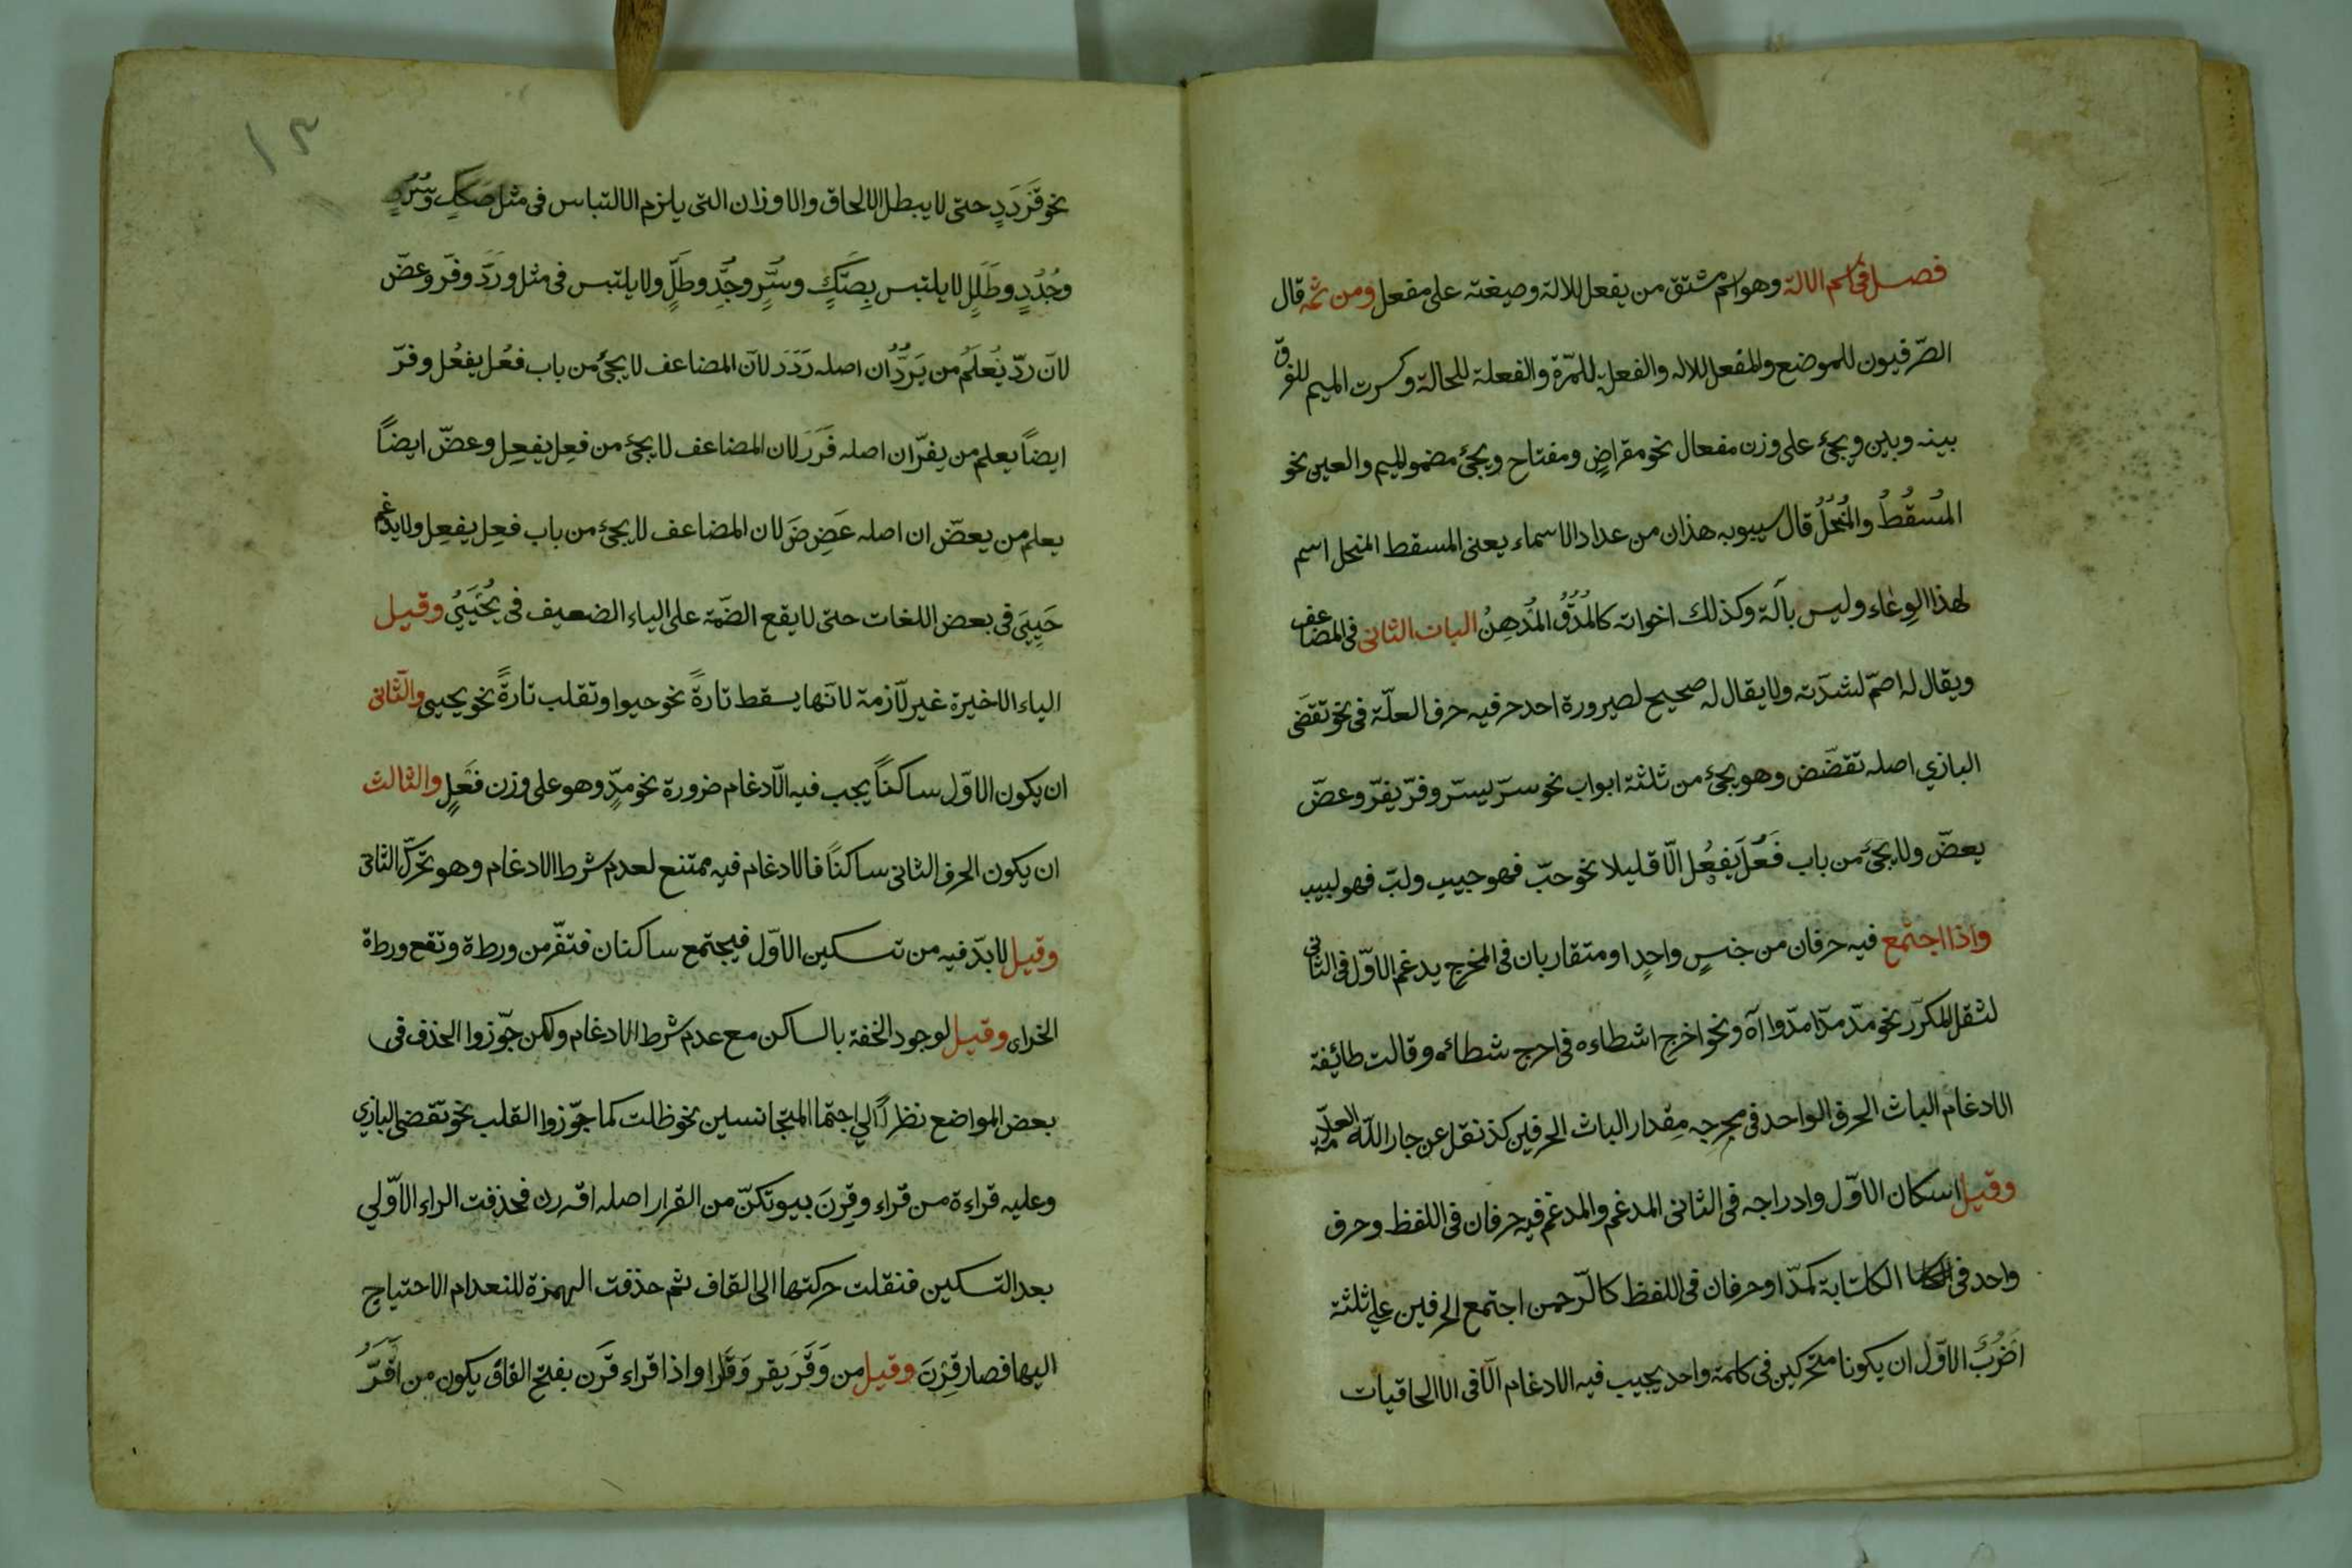 فصل فى اسم الالة وهو اسم مشتق من يفعل للالة وصيغته على مفعل ومن ثمه قال
الصّرفيون للموضع والمفعل للاله والفعلة للمّرة والفعلة للحالة وكسرت الميم للفرق
بينه وبين ويجئ على وزن مفعال نحو مقراضٍ ومفتاح ويجئ مضموم الميم والعين نحو
المُسقُطُ والمُنُحُلُ قال سيبويه هذان من عداد الاسماء يعنى المسقط المنحل اسم
لهذا الوِعٰاء وليس بآلة وكذلك اخواته كالمُدُقُّ المُدهِنُ الباب الثانى فى المضاعف
ويقال له اصمّ لشدّته ولا يقال له صحيح لصيرورة احد حرفيه حرف العلّة فى نحو تقضَى
البازي اصله تقضّض وهو يجئ من ثلثة ابواب نحو سرّ يسرّ وفرّ يفرّ وعضّ
يعضّ ولا يجئ من باب فَعُلَ يَفعُل الّا قليلا نحو حبّ فهو حبيب ولبّ فهو لبيب
واذا اجتمع فيه حرفان من جنسٍ واحدٍ او متقاربان فى المخرج يدغم الاوّل فى الثانى
لثقل المكرّر نحو مدّ مدّا مدّوا آه ونحو اخرج اشطاءه فى احرج شطائه وقالت طائيفة
الادغام الباث الحرف الواحد فى مجرجه مِقدار الباث الحرفين كذ نقل عن جار اللّه العلّامة
وقيل اسكان الاوّل وادراجه فى الثانى المدغم والمدغم فيه حرفان فى اللفظ وحرف
واحد فى الكتابة كمدّا وحرفان فى اللفظ كالرّحمن اجتمع الحرفين علي ثلثة
اضرُبٍ الاوّل ان يكونا متحركين فى كلمة واحد يجيب فيه الادغام الّا فى الالحاقيات
١٣
نحو قَرَدَدٍ حتى لا يبطل الالحاق والاوزان التى يلزم الالتباس فى مثل صَكَكٍ وسُرُرٍ
وجُدُدٍ وطَلَلٍ لا يلتبس بِصَكٍّ وسُرٍّ وجُدٍّ وطَلٍّ ولا يلتبس فى مثل ورَدّ وفرّ وعضّ
لانّ ردّ يُعلَمُ من يَردُّ ان اصله رَدَدَ لانّ المضاعف لا يجئ من باب فعُل يفعُل وفرّ
ايضاً يعلم من يفرّ ان اصله فَرَرَ لان المضاعف لا يجئ من فعِل يفعِل وعضّ ايضاً
يعلم من يعضّ ان اصله عَضِضَ لان المضاعف لا يجئ من باب فعِل يفعِل ولا يدغم
حَيِيَ فى بعض اللغات حتى لا يقع الضّمة على الياء الضعيف فى يُحيَيُ وقيل
الياء الاخيرة غير لآزمة لانّها يسقط تارةً نحو حيوا وتقلب تارةً نحو يحيى والثّانى
ان يكون الاوّل ساكناً يجب فيه الّادغام ضرورة نحو مدٍّ وهو على وزن فَعلٍ والثالث
ان يكون الحرف الثانى ساكناً فالادغام فيه ممتنع لعدم شرط الادغام وهو تحرّك الثانى
وقيل لابدّ فيه من تسكين الاوّل فيجتمع ساكنان فتفّر من ورطة وتقع ورطة
الخراى وقيل لوجود الخفة بالساكن مع عدم شرط الادغام ولكن جوّزوا الحذف فى
بعض المواضع نظراً الي اجتما المتجانسين نحو ظلت كما جوّزوا القلب نحو تقضى البازي
وعليه قراءة من قراء وقِرنَ بيوتكنّ من القرار اصله اقررن فحذفت الراء الاوّلي
بعد التسكين فنقلت حركتها الى القاف ثم حذفت الهمزة للنعدام الاحتياج
اليها فصار قِرْنَ وقيل من وَقَرَ يقر وَقَارا واذا قراء قَرَن بفتح القاف يكون من اقَرُّ